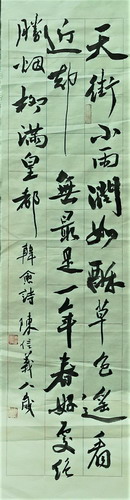 天街小雨潤如酥草色遙看
近却無最是一年春好處絕
勝烟柳滿皇都
韓愈詩 陳信義八歲